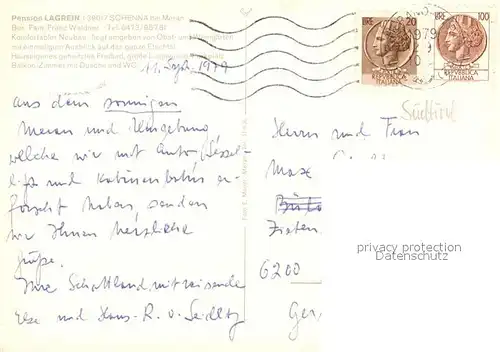 Pension LAGREIN I 39017 SCHENNA bei Meran
Bes. Fam. Franz Waldner Tel. 0473/85781
Komfortabler Neubau, liegt umgeben von Obst- und Weingärten
mit einmaligem Ausblick auf das ganze Etschtal.
Hauseigenes geheiztes Freibad, große Liegewiese, Parkplatz
Balkon-Zimmer mit Dusche und WC.
LIRE 20
REPVBBLICA
ITALIANA
LIRE 100
REPVBBLICA
ITALIANA
1979
Südtirol
11. Sept. 1979
aus dem sonnigen
Meran und Umgebung
welche wir mit Auto, Sessel-
lift und Kabinenbahn er-
forscht haben senden
wir Ihnen herzliche
Grüße.
Ihre Schottland mitreisende
Else und Hans-R. v. Seidlitz
Herrn und Frau
Max
6200
privacy protection
www.oldthing.com